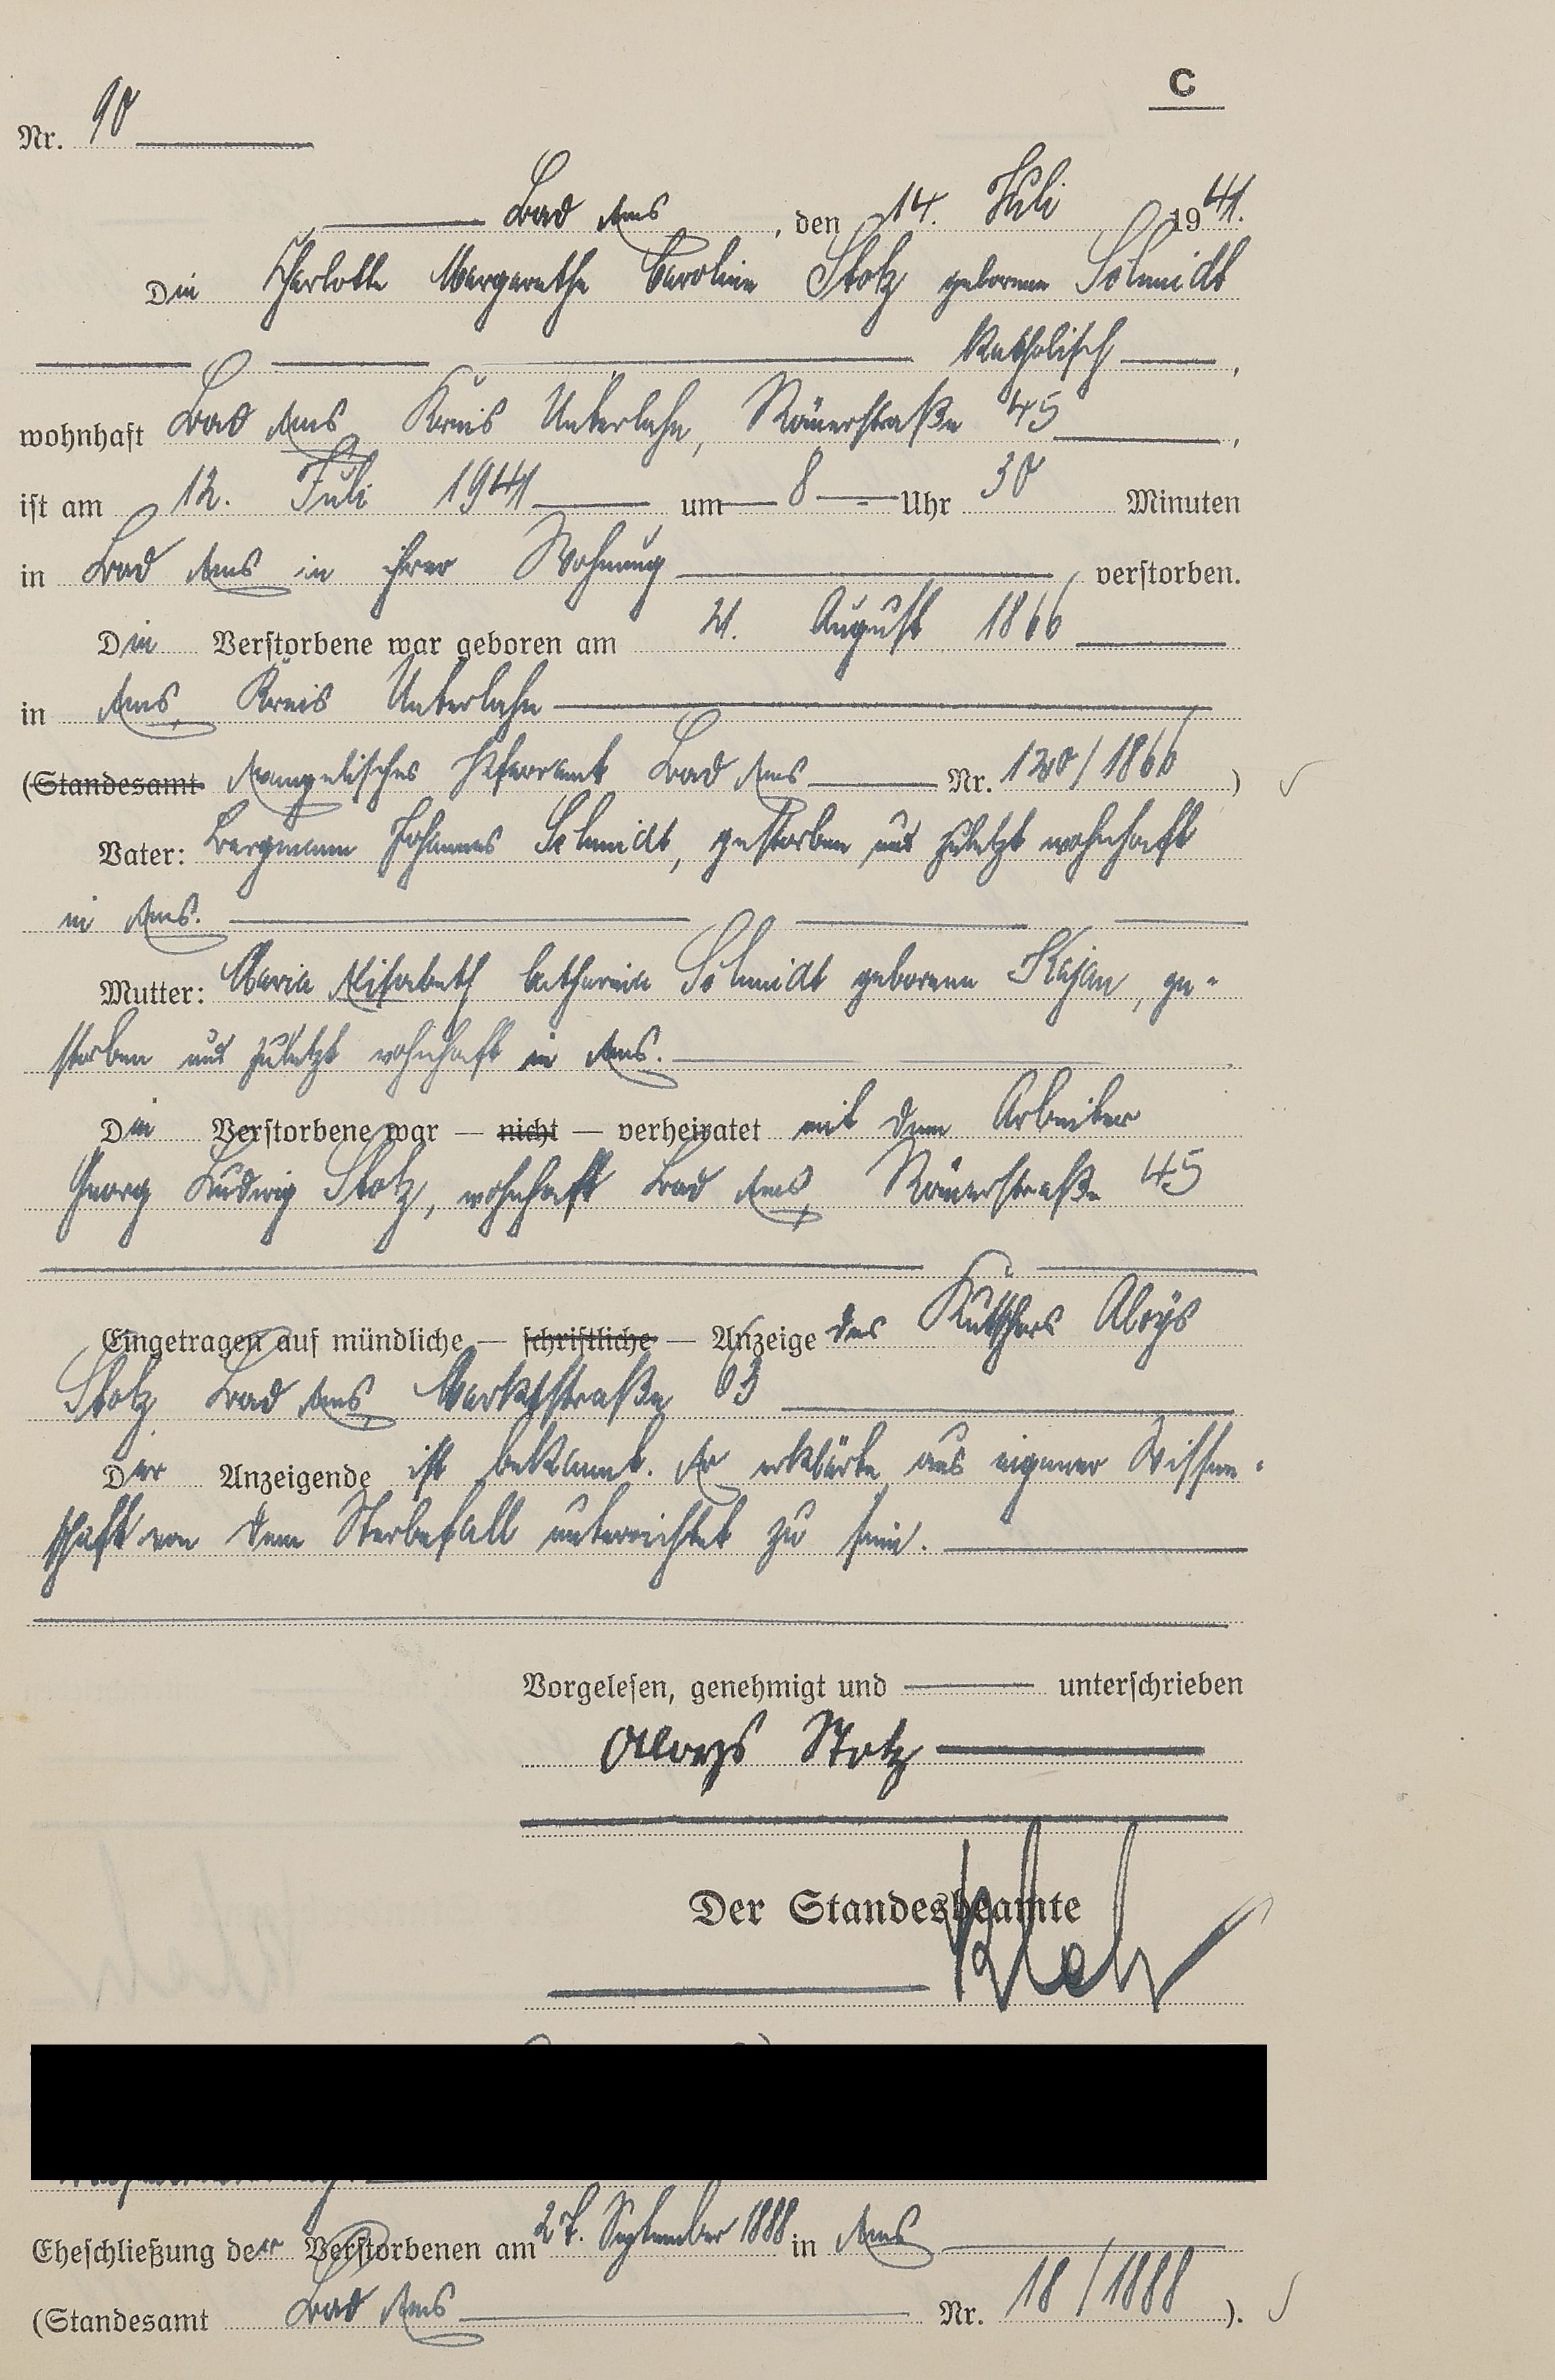 C
Nr. 90
Bad Ems, den 14. Juli 1941.
Die Charlotte Margarethe Caroline Stotz geborene Schmidt
katholisch,
wohnhaft Bad Ems Kreis Unterlahn, Römerstraße 45,
ist am 12. Juli 1941 um 8 Uhr 30 Minuten
in Bad Ems in ihrer Wohnung verstorben.
Die Verstorbene war geboren am 21. August 1866
in Ems, Kreis Unterlahn
(Standesamt Evangelisches Pfarramt Bad Ems Nr. 120/1866)
Vater: Bergmann Johannes Schmidt, gestorben und zuletzt wohnhaft
in Ems.
Mutter: Maria Elisabeth Catharina Schmidt geborene Kajan, ge-
storben und zuletzt wohnhaft in Ems.
Die Verstorbene war — nicht — verheiratet mit dem Arbeiter
Georg Ludwig Stotz, wohnhaft Bad Ems, Römerstraße 45
Eingetragen auf mündliche — schriftliche — Anzeige des Kutschers Aloys
Stotz, Bad Ems, Marktstraße 63
Der Anzeigende ist bekannt. Er erklärte, aus eigener Wissen-
schaft von dem Sterbefall unterrichtet zu sein.
Vorgelesen, genehmigt und unterschrieben
Aloys Stotz
Der Standesbeamte
Eheschließung der Verstorbenen am 27. September 1888 in Ems
(Standesamt Bad Ems Nr. 18/1888).